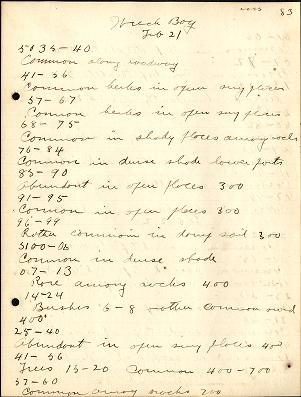 83
Wreck Bay
Feb 21
5035-40
Common along roadway
41-56
Common herbs in open sunny places
57-67
Common herbs in open sunny places
68-75
Common in shady places among rocks
76-84
Common in dense shade lower parts
85-90
Abundant in open places 300
91-95
Common in open places 300
96-99
Rather common in damp soil 300
5100-06
Common in dense shade
07-13
Rare among rocks 400
14-24
Bushes 6-8 rather common
400
25-40
Abundant in open sunny places 400
41-56
Trees 15-20 Common 400-700
57-60
Common among rocks 700